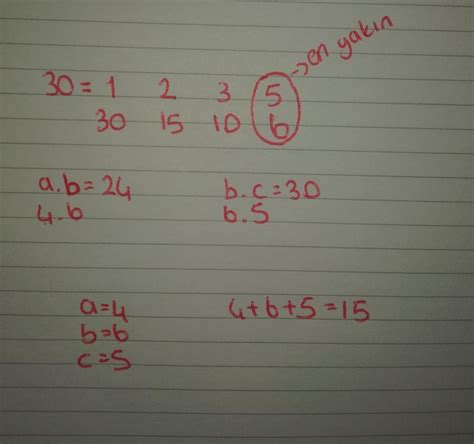 → en yakın
30 = 1 2 3 5
30 15 10 6
a.b=24 b.c=30
4.6 6.5
a=4 4+6+5=15
b=6
c=5